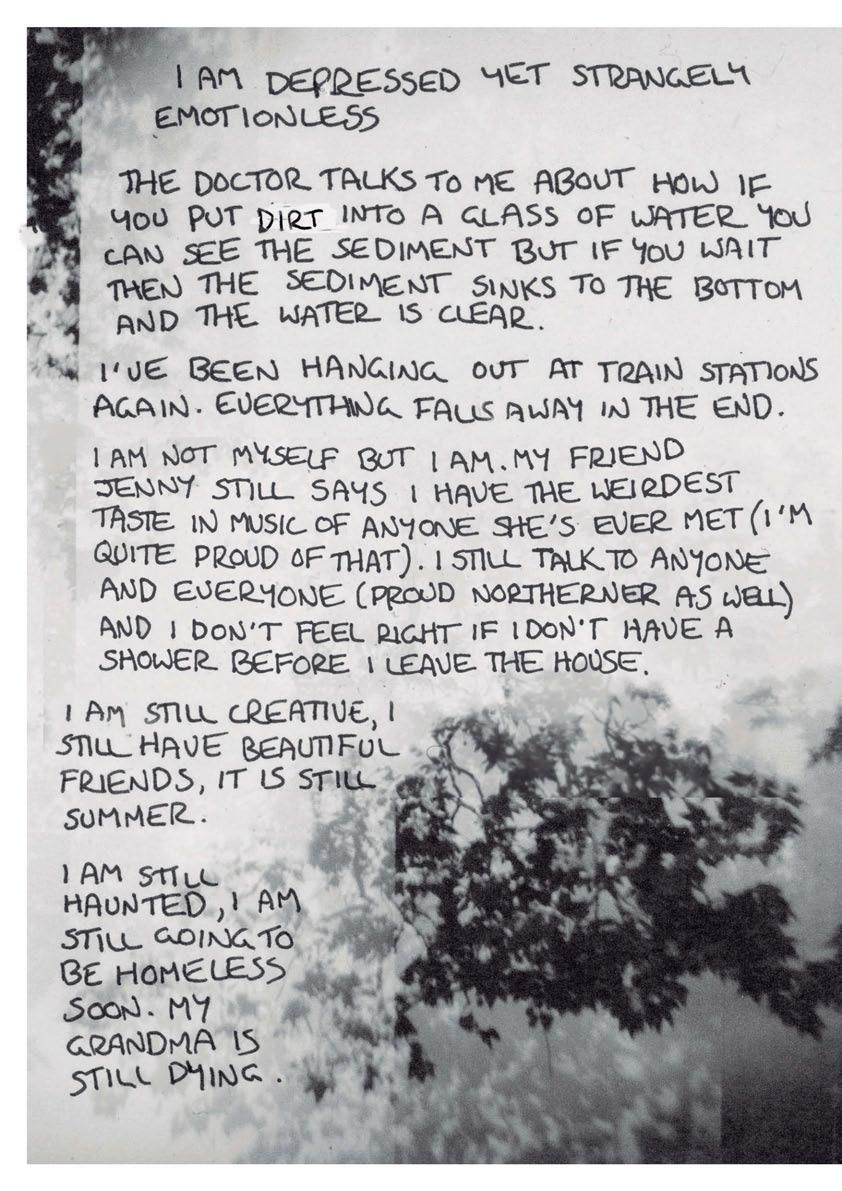 I AM DEPRESSED YET STRANGELY
EMOTIONLESS
THE DOCTOR TALKS TO ME ABOUT HOW IF
YOU PUT DIRT INTO A GLASS OF WATER YOU
CAN SEE THE SEDIMENT BUT IF YOU WAIT
THEN THE SEDIMENT SINKS TO THE BOTTOM
AND THE WATER IS CLEAR.
I'VE BEEN HANGING OUT AT TRAIN STATIONS
AGAIN. EVERYTHING FALLS AWAY IN THE END.
I AM NOT MYSELF BUT I AM. MY FRIEND
JENNY STILL SAYS I HAVE THE WEIRDEST
TASTE IN MUSIC OF ANYONE SHE'S EVER MET (I'M
QUITE PROUD OF THAT). I STILL TALK TO ANYONE
AND EVERYONE (PROUD NORTHERNER AS WELL)
AND I DON'T FEEL RIGHT IF I DON'T HAVE A
SHOWER BEFORE I LEAVE THE HOUSE.
I AM STILL CREATIVE, I
STILL HAVE BEAUTIFUL
FRIENDS, IT IS STILL
SUMMER.
I AM STILL
HAUNTED, I AM
STILL GOING TO
BE HOMELESS
SOON. MY
GRANDMA IS
STILL DYING.